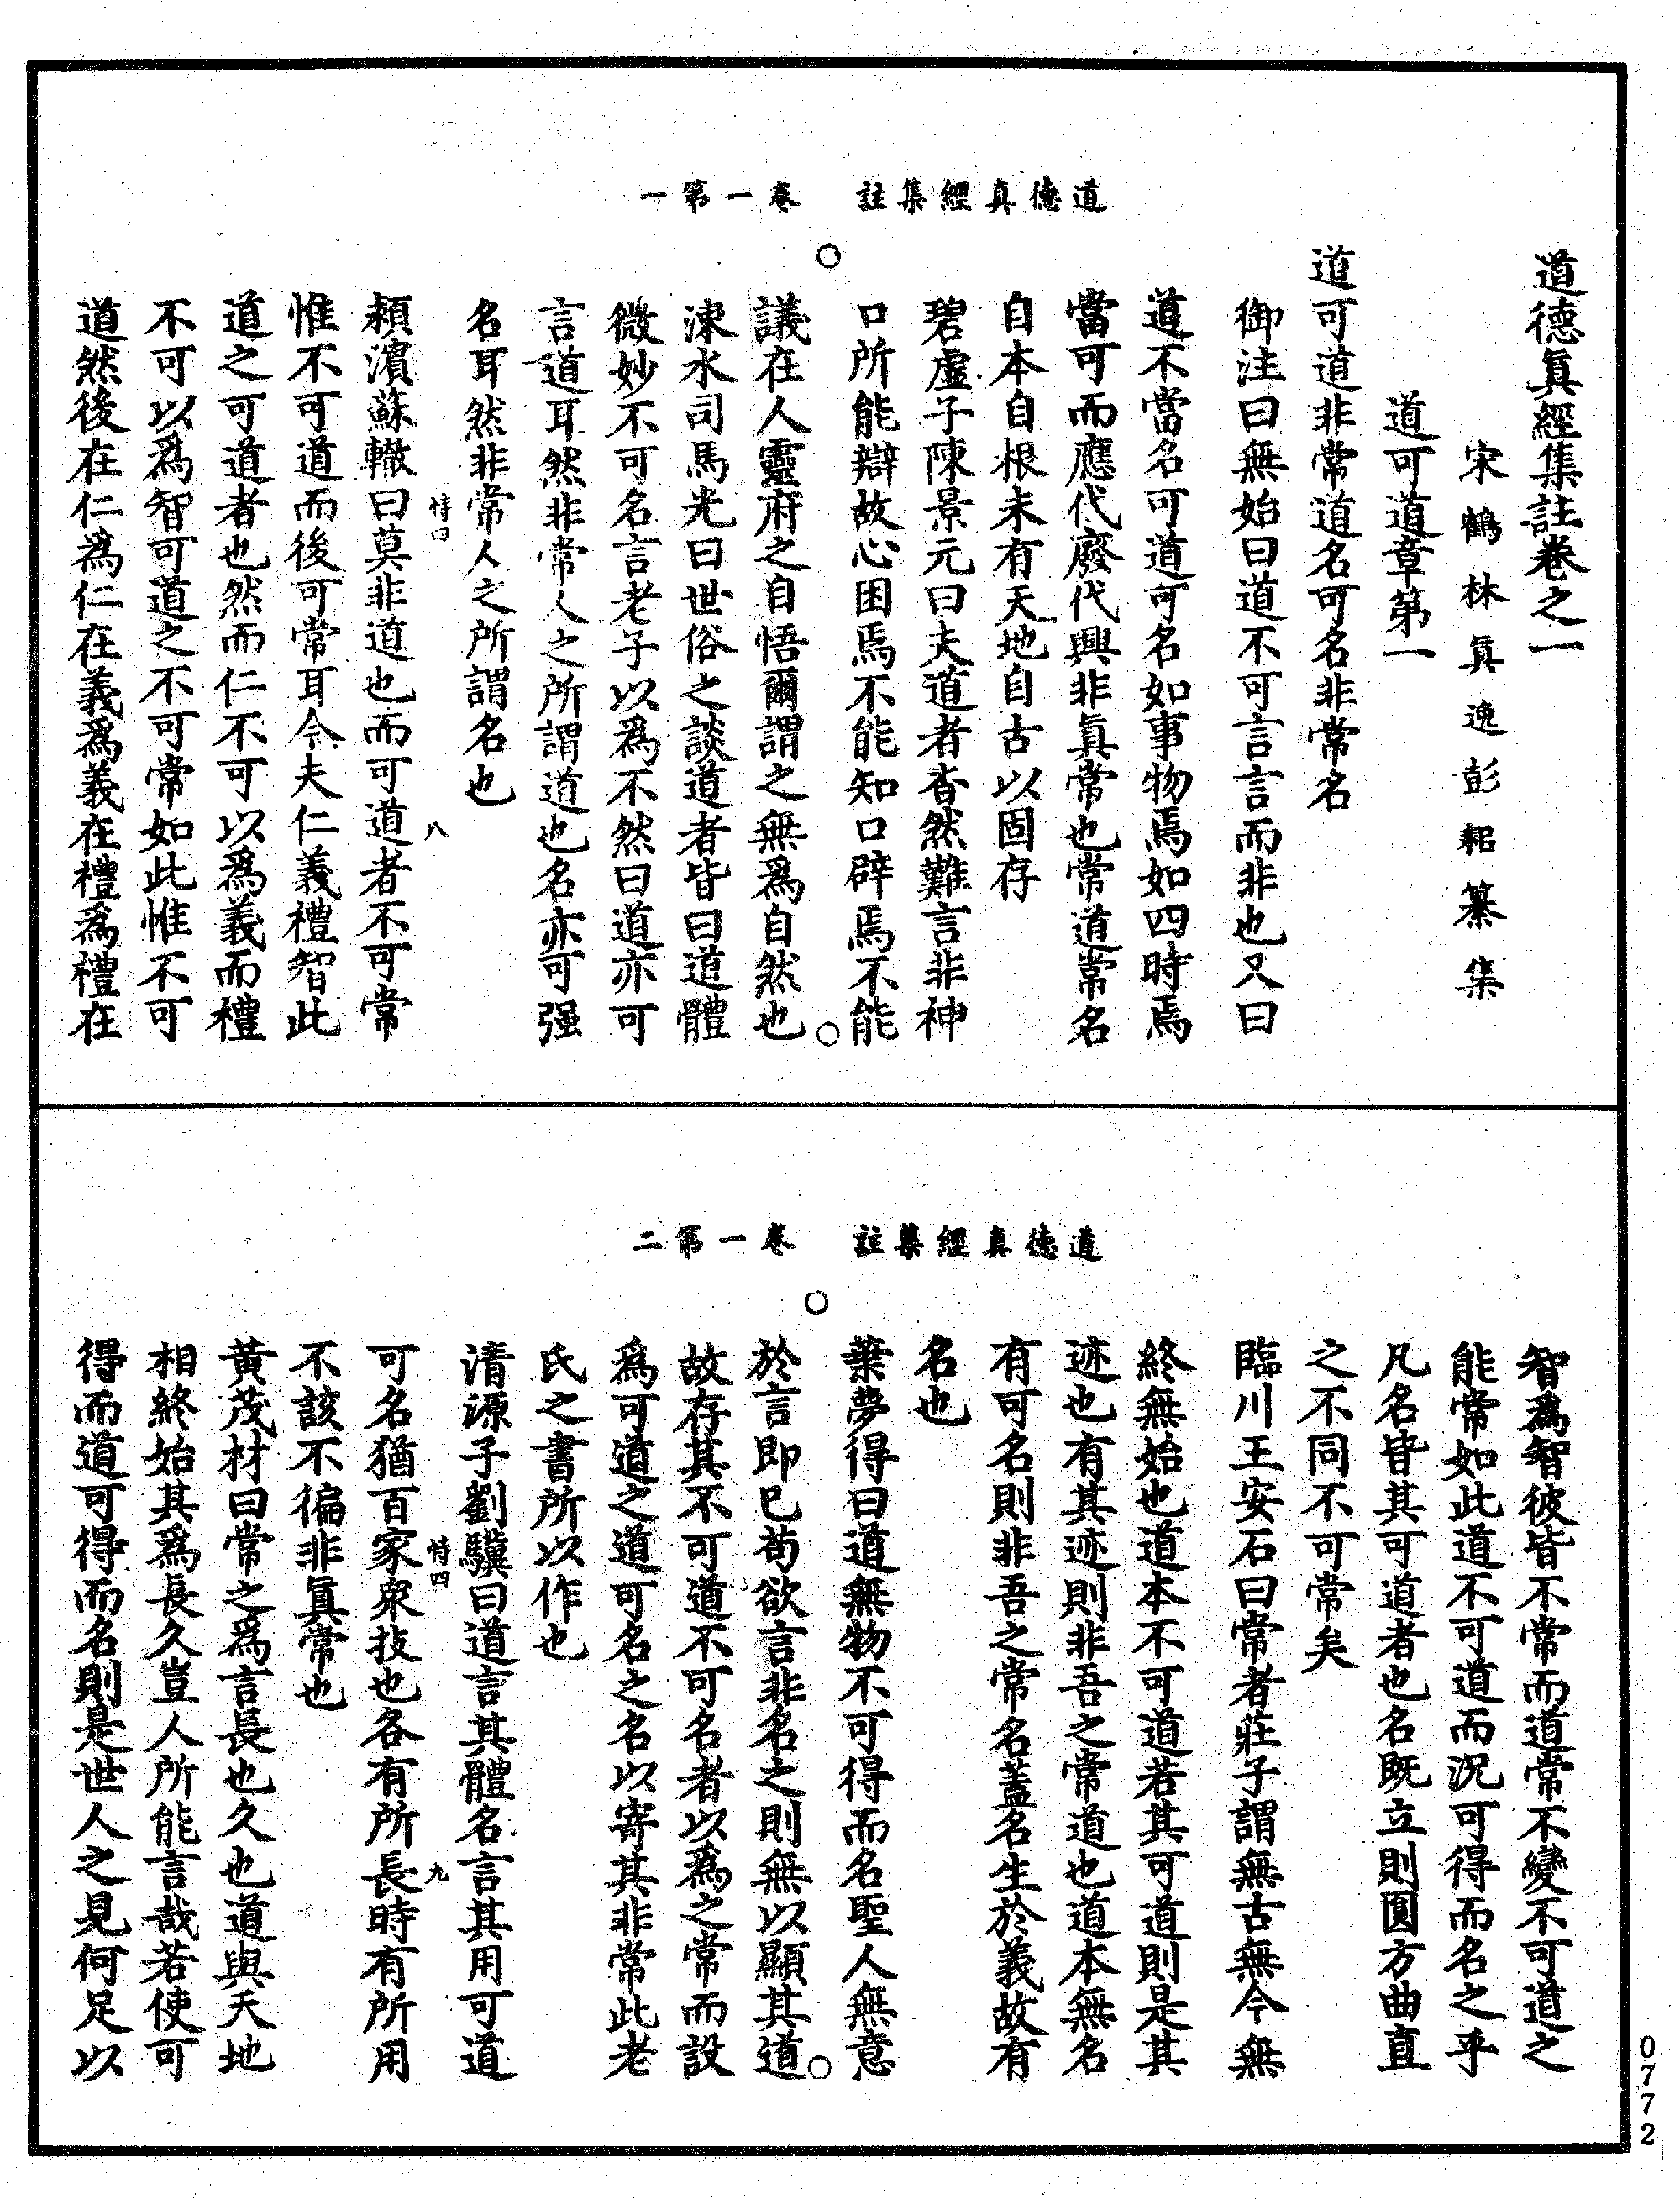 道德真經集註　卷一第一
道德眞經集註卷之一
宋鶴林眞逸彭耜纂集
道可道章第一
道可道非常道名可名非常名
御注曰無始曰道不可言言而非也又曰
道不當名可道可名如事物焉如四時焉
當可而應代廢代興非眞常也常道常名
自本自根未有天地自古以固存
碧虛子陳景元曰夫道者杳然難言非神
口所能辯故心困焉不能知口辟焉不能
議在人靈府之自悟爾謂之無爲自然也
涑水司馬光曰世俗之談道者皆曰道體
微妙不可名言老子以爲不然曰道亦可
言道耳然非常人之所謂道也名亦可强
名耳然非常人之所謂名也
恃曰　八
潁濱蘇轍曰莫非道也而可道者不可常
惟不可道而後可常耳今夫仁義禮智此
道之可道者也然而仁不可以爲義而禮
不可以爲智可道之不可常如此惟不可
道然後在仁爲仁在義爲義在禮爲禮在
道德真經集註　卷一第二
智爲智彼皆不常而道常不變不可道之
能常如此道不可道而況可得而名之乎
凡名皆其可道者也名既立則圓方曲直
之不同不可常矣
臨川王安石曰常者莊子謂無古無今無
終無始也道本不可道若其可道則是其
迹也有其迹則非吾之常道也道本無名
有可名則非吾之常名蓋名生於義故有
名也
葉夢得曰道無物不可得而名聖人無意
於言即已苟欲言非名之則無以顯其道
故存其不可道不可名者以爲之常而設
爲可道之道可名之名以寄其非常此老
氏之書所以作也
清源子劉驥曰道言其體名言其用可道
恃四　九
可名猶百家衆技也各有所長時有所用
不該不徧非眞常也
黃茂材曰常之爲言長也久也道與天地
相終始其爲長久豈人所能言哉若使可
得而道可得而名則是世人之見何足以
0772